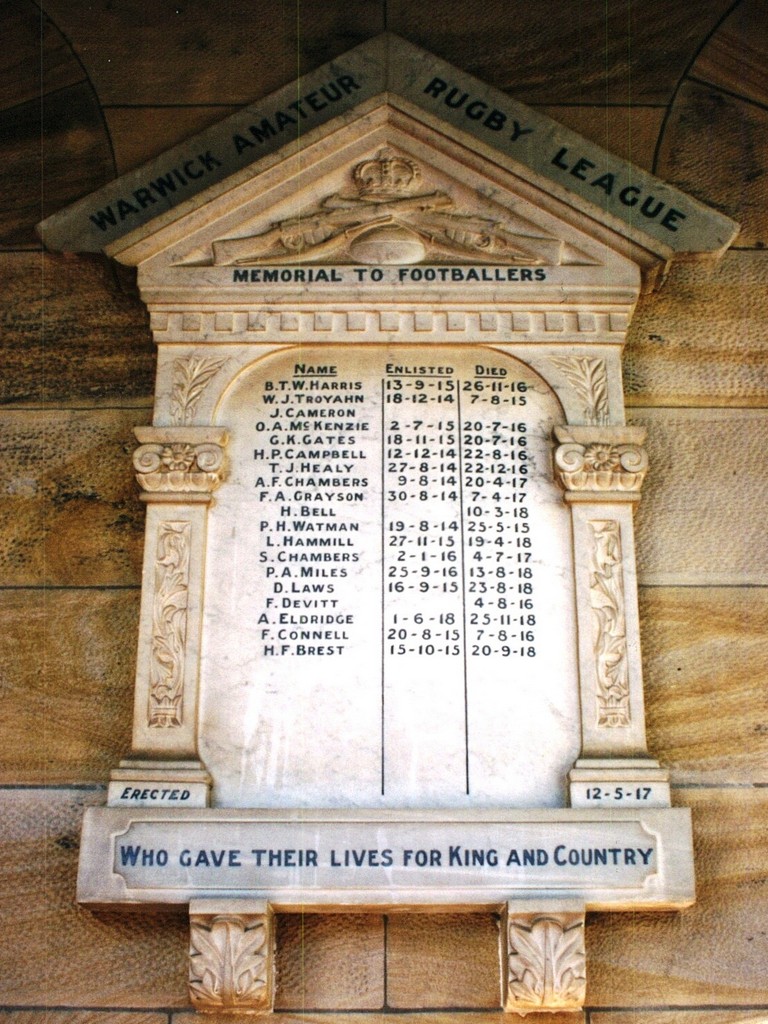 WARWICK AMATEUR RUGBY LEAGUE
MEMORIAL TO FOOTBALLERS
NAME ENLISTED DIED
B.T.W.HARRIS 13-9-15 26-11-16
W.J.TROYAHN 18-12-14 7-8-15
J.CAMERON
O.A.McKENZIE 2-7-15 20-7-16
G.K.GATES 18-11-15 20-7-16
H.P.CAMPBELL 12-12-14 22-8-16
T.J.HEALY 27-8-14 22-12-16
A.F.CHAMBERS 9-8-14 20-4-17
F.A.GRAYSON 30-8-14 7-4-17
H.BELL 10-3-18
P.H.WATMAN 19-8-14 25-5-15
L.HAMMILL 27-11-15 19-4-18
S.CHAMBERS 2-1-16 4-7-17
P.A.MILES 25-9-16 13-8-18
D.LAWS 16-9-15 23-8-18
F.DEVITT 4-8-16
A.ELDRIDGE 1-6-18 25-11-18
F.CONNELL 20-8-15 7-8-16
H.F.BREST 15-10-15 20-9-18
ERECTED 12-5-17
WHO GAVE THEIR LIVES FOR KING AND COUNTRY